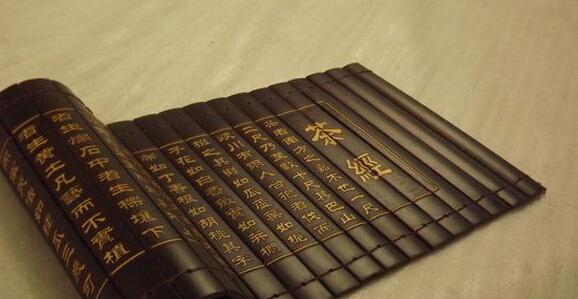 茶經
茶者南方之嘉木也一尺
二尺乃至數十尺其巴山
峽川有兩人合抱者伐而
掇之其樹如瓜蘆葉如梔
子花如白薔薇實如栟櫚
如丁香根如胡桃其字
者生爛石中者生櫟壤下
者生黃土凡藝而不實植
而罕茂法如種瓜三歲可